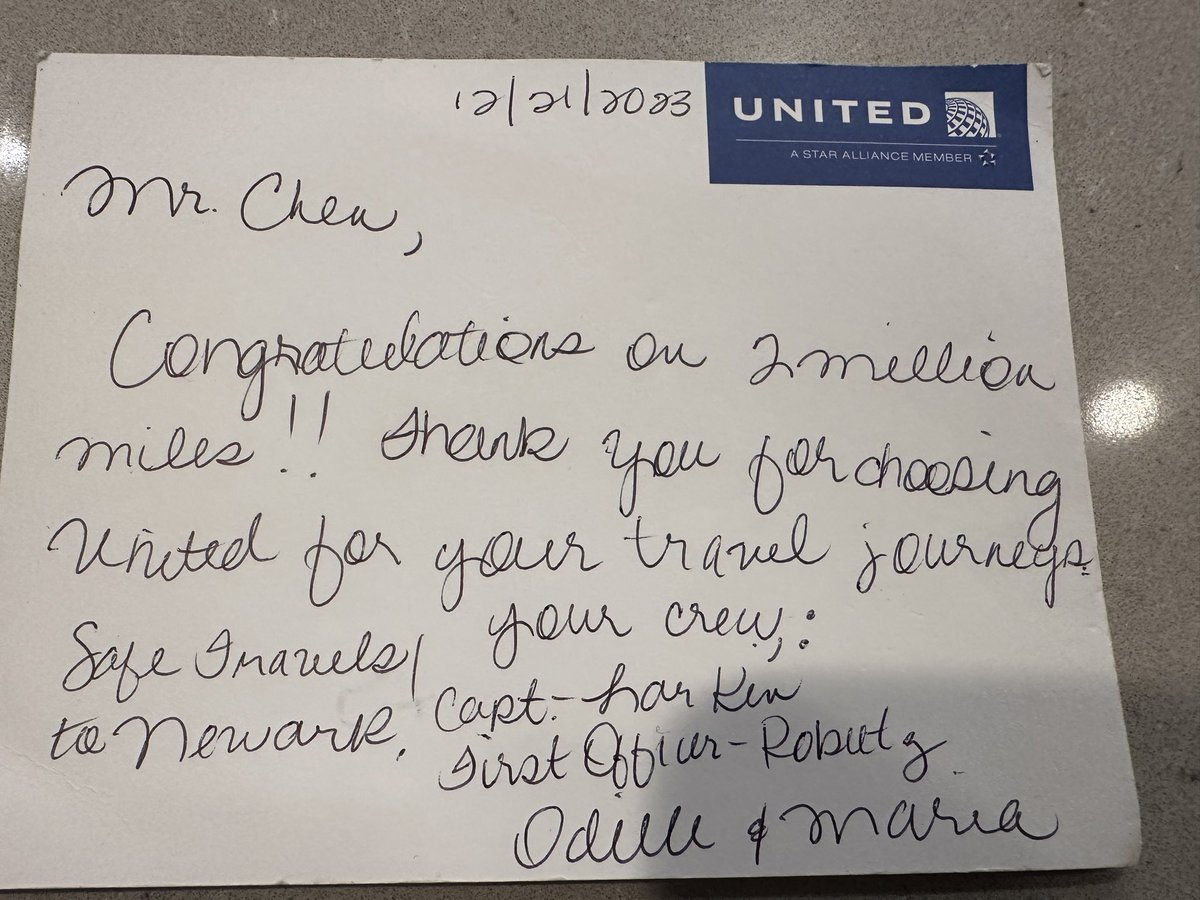 12/21/2023
UNITED
A STAR ALLIANCE MEMBER
Mr. Chen,
Congratulations on 2 million
miles!! Thank you for choosing
United for your travel journeys.
Safe Travels, your crew:
to Newark. Capt. - Larkin
First Officer -
Odille & Maria